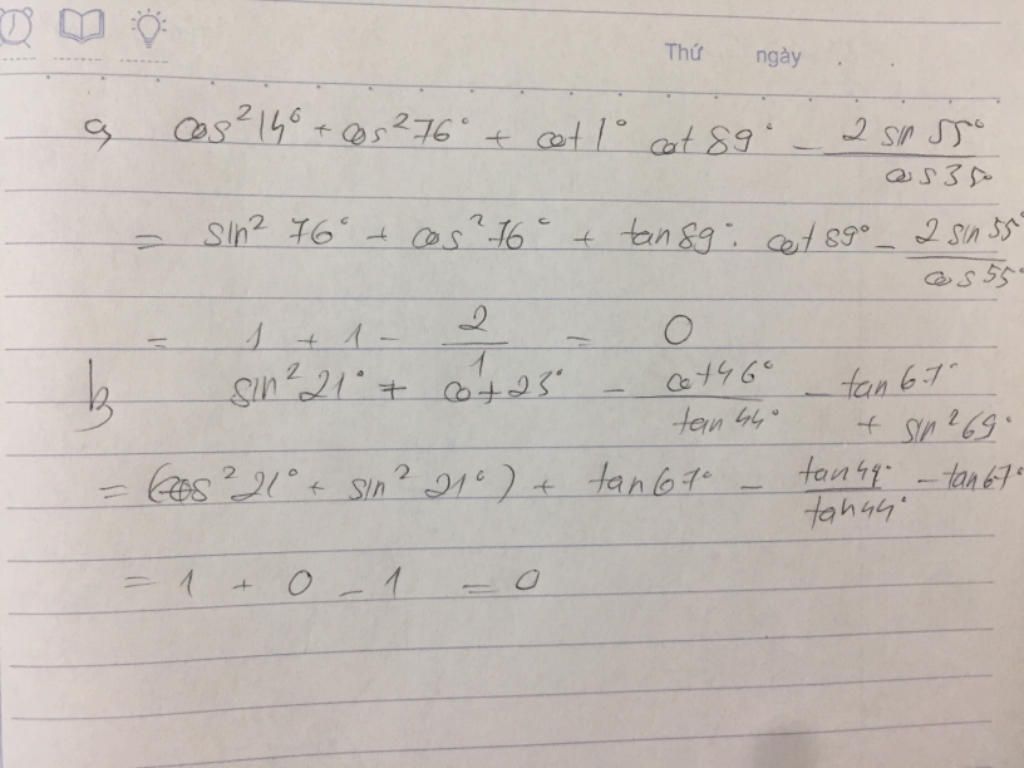 Thứ ngày
a, cos²14° + cos²76° + cot 1° cot 89° - 2 sin 55° / cos 35°
= sin² 76° + cos²76° + tan 89° . cot 89° - 2 sin 55° / cos 55°
= 1 + 1 - 2/1 = 0
b, sin²21° + cot 23° - cot 46° / tan 44° - tan 67°
+ sin²69°
= (cos²21° + sin²21°) + tan 67° - tan 44° / tan 44° - tan 67°
= 1 + 0 - 1 = 0